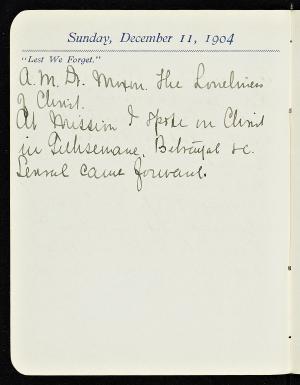 Sunday, December 11, 1904
"Lest We Forget."
A.M. Dr. Moxon. The Loneliness
of Christ.
At Mission I spoke on Christ
in Gethsemane, Betrayal &c.
Several came forward.